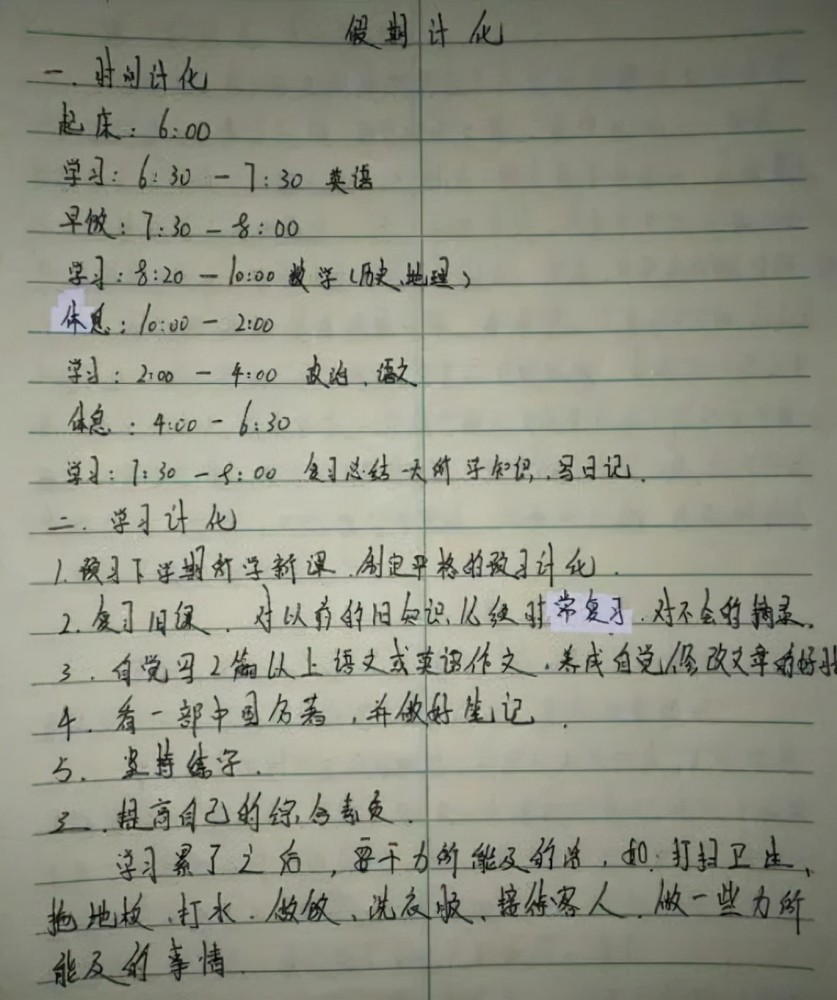 假期计化
一.时间计化
起床:6:00
学习:6:30-7:30 英语
早饭:7:30-8:00
学习:8:20-10:00 数学(历史、地理)
休息:10:00-2:00
学习:2:00-4:00 政治、语文
休息:4:00-6:30
学习:7:30-8:00 复习总结一天所学知识,写日记.
二.学习计化
1.预习下学期所学新课.制定严格的预习计化.
2.复习旧课.对以前的旧知识,必经时常复习.对不会的摘录.
3.自觉写2篇以上语文或英语作文.养成自觉修改文章的好
4.看一部中国名著,并做好笔记.
5.坚持练字.
三.提高自己的综合素质.
学习累了之后,要干力所能及的活,如:打扫卫生、
拖地板、打水.做饭、洗衣服、接待客人.做一些力所
能及的事情.